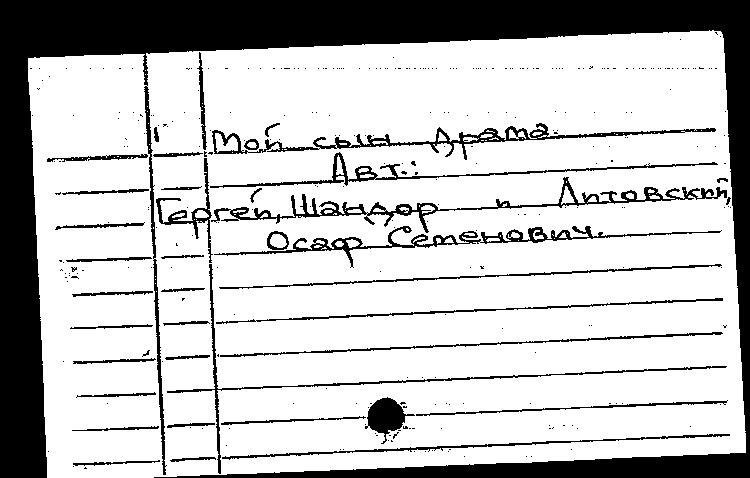 Мой сын Драма.
Авт.:
Гергей, Шандор и Литовский,
Осаф Семенович.